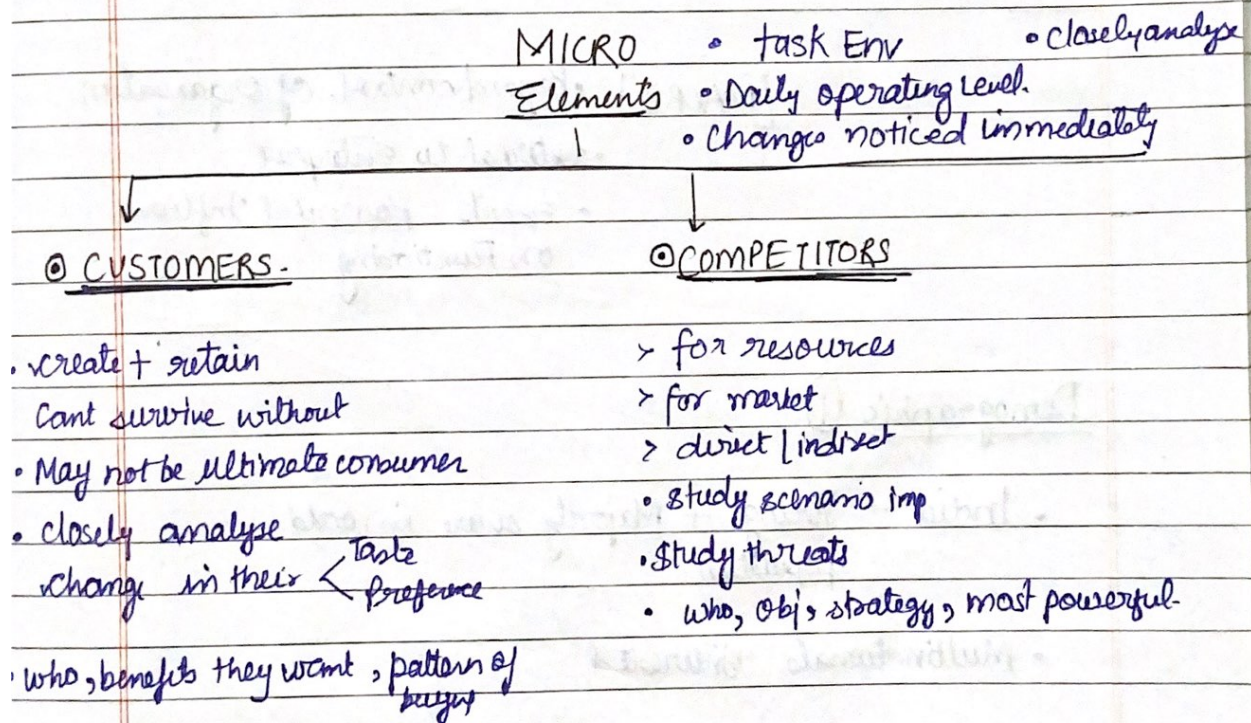 MICRO • task Env • Closely analyse
Elements • Daily operating Level.
• Changes noticed immediately
⊙ CUSTOMERS.
• create + retain
Cant survive without
• May not be ultimate consumer
• closely analyse
change in their < Taste
Preference
• who, benefits they want, pattern of
buyer
⊙ COMPETITORS
> for resources
> for market
> direct | indirect
• study scenario imp
• Study threats
• who, obj, strategy, most powerful.